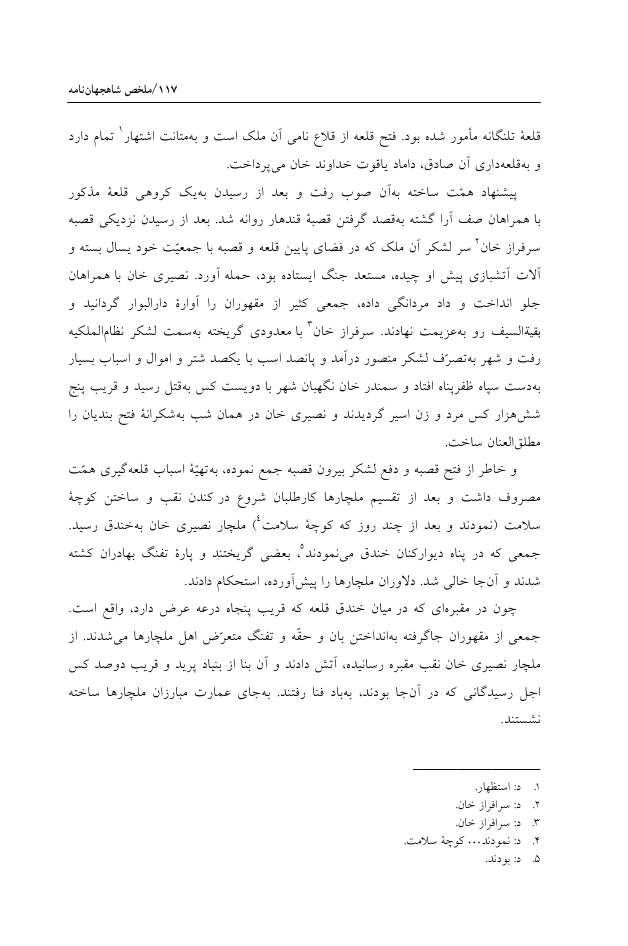 ۱۱۷/ملخص شاهجهان‌نامه
قلعهٔ تلنگانه مأمور شده بود. فتح قلعه از قلاع نامی آن ملک است و به‌متانت اشتهار۱ تمام دارد
و به‌قلعه‌داری آن صادق، داماد یاقوت خداوند خان می‌پرداخت.
پیشنهاد همّت ساخته به‌آن صوب رفت و بعد از رسیدن به‌یک کروهی قلعهٔ مذکور
با همراهان صف آرا گشته به‌قصد گرفتن قصبهٔ قندهار روانه شد. بعد از رسیدن نزدیکی قصبه
سرفراز خان۲ سر لشکر آن ملک که در فضای پایین قلعه و قصبه با جمعیّت خود یسال بسته و
آلات آتشبازی پیش او چیده، مستعد جنگ ایستاده بود، حمله آورد. نصیری خان با همراهان
جلو انداخت و داد مردانگی داده، جمعی کثیر از مقهوران را آوارهٔ دارالبوار گردانید و
بقیةالسیف رو به‌عزیمت نهادند. سرفراز خان۳ با معدودی گریخته به‌سمت لشکر نظام‌الملکیه
رفت و شهر به‌تصرّف لشکر منصور درآمد و پانصد اسب با یکصد شتر و اموال و اسباب بسیار
به‌دست سپاه ظفرپناه افتاد و سمندر خان نگهبان شهر با دویست کس به‌قتل رسید و قریب پنج
شش‌هزار کس مرد و زن اسیر گردیدند و نصیری خان در همان شب به‌شکرانهٔ فتح بندیان را
مطلق‌العنان ساخت.
و خاطر از فتح قصبه و دفع لشکر بیرون قصبه جمع نموده، به‌تهیّهٔ اسباب قلعه‌گیری همّت
مصروف داشت و بعد از تقسیم ملچارها کارطلبان شروع در کندن نقب و ساختن کوچهٔ
سلامت (نمودند و بعد از چند روز که کوچهٔ سلامت۴) ملچار نصیری خان به‌خندق رسید.
جمعی که در پناه دیوارکنان خندق می‌نمودند۵، بعضی گریختند و پارهٔ تفنگ بهادران کشته
شدند و آن‌جا خالی شد. دلاوران ملچارها را پیش‌آورده، استحکام دادند.
چون در مقبره‌ای که در میان خندق قلعه که قریب پنجاه درعه عرض دارد، واقع است.
جمعی از مقهوران جاگرفته به‌انداختن بان و حقّه و تفنگ متعرّض اهل ملچارها می‌شدند. از
ملچار نصیری خان نقب مقبره رسانیده، آتش دادند و آن بنا از بنیاد پرید و قریب دوصد کس
اجل رسیدگانی که در آن‌جا بودند، به‌باد فنا رفتند. به‌جای عمارت مبارزان ملچارها ساخته
نشستند.
۱. د: استظهار.
۲. د: سرافراز خان.
۳. د: سرافراز خان.
۴. د: نمودند... کوچهٔ سلامت.
۵. د: بودند.